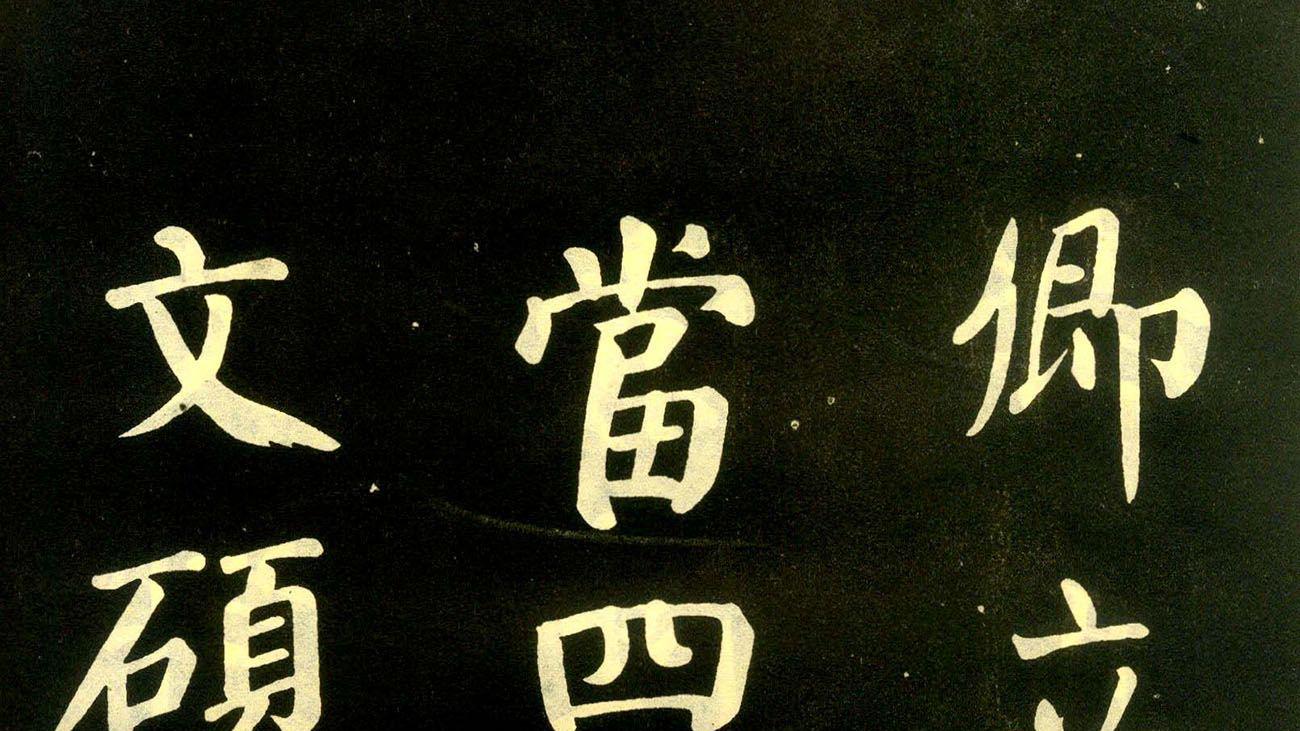 卿立
當四
文碩